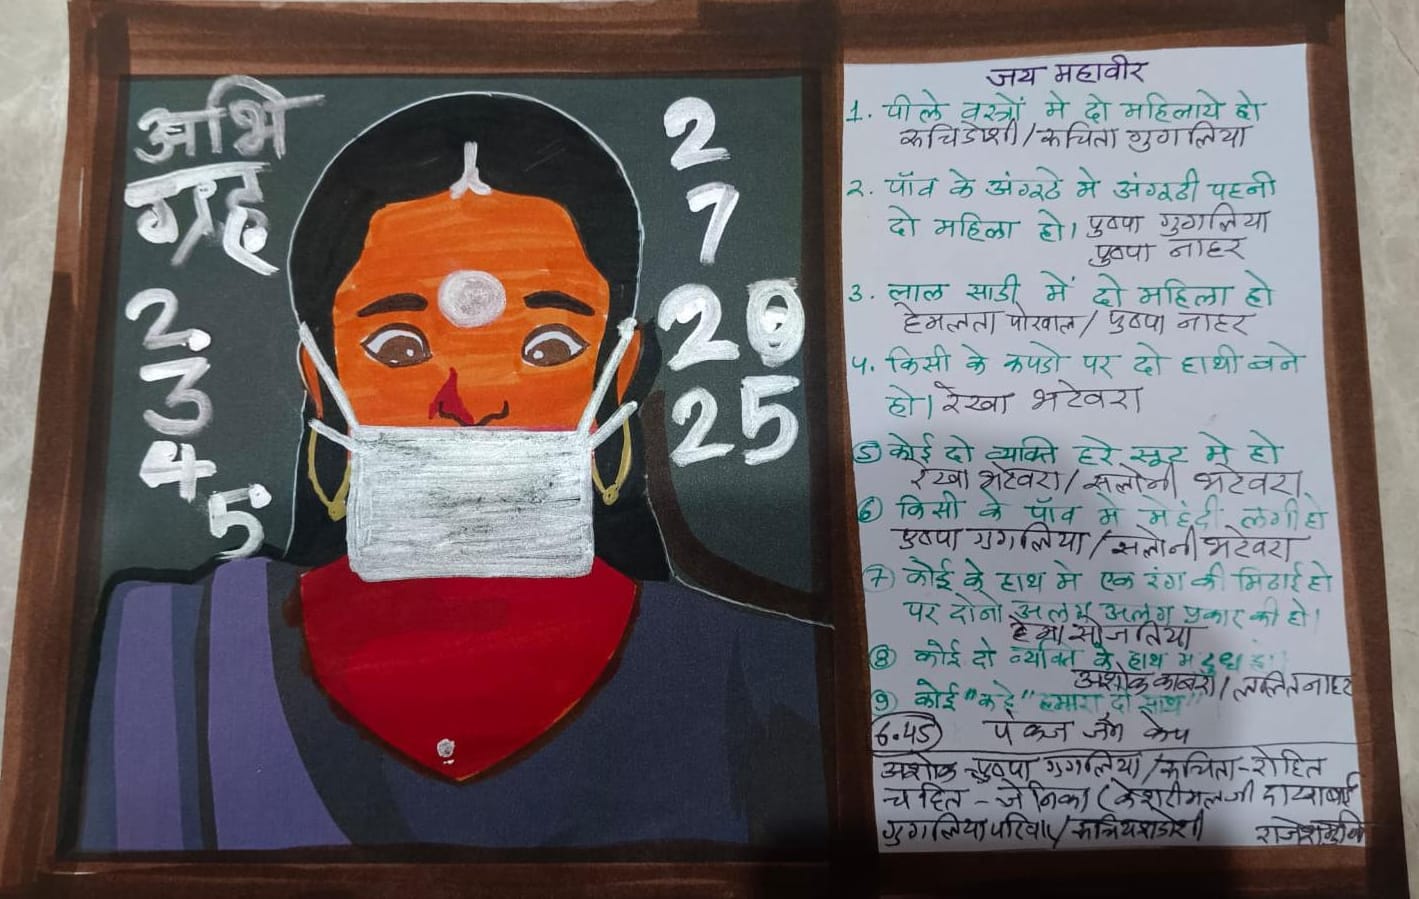 अभि
ग्रह
2.
3
4
5
2
7
20
25
जय महावीर
1. पीले वस्त्रों मे दो महिलाये हो
रूचि डोशी / रूचिता गुगलिया
२. पॉव के अंगूठे मे अंगूठी पहनी
दो महिला हो। पुष्पा गुगलिया
पुष्पा नाहर
3. लाल साडी में दो महिला हो
हेमलता पोरवाल / पुष्पा नाहर
4. किसी के कपडो पर दो हाथी बने
हो। रेखा भटेवरा
5 कोई दो व्यक्ति हरे सूट मे हो
रेखा भटेवरा / सलोनी भटेवरा
6 किसी के पॉव मे मेहंदी लगी हो
पुष्पा गुगलिया / सलोनी भटेवरा
7 कोई के हाथ मे एक रंग की मिठाई हो
पर दोनो अलग अलग प्रकार की हो।
हेमा सोजतिया
8 कोई दो व्यक्ति के हाथ मे दुध
अशोक काबरा / ललित नाहर
9) कोई "कहे" हमारा दो साथ"
6.45 पंकज जैन
अशोक पुष्पा गुगलिया / रूचिता - रोहित
चहित - जेनिका (केशरीमलजी
गुगलिया परिवार /